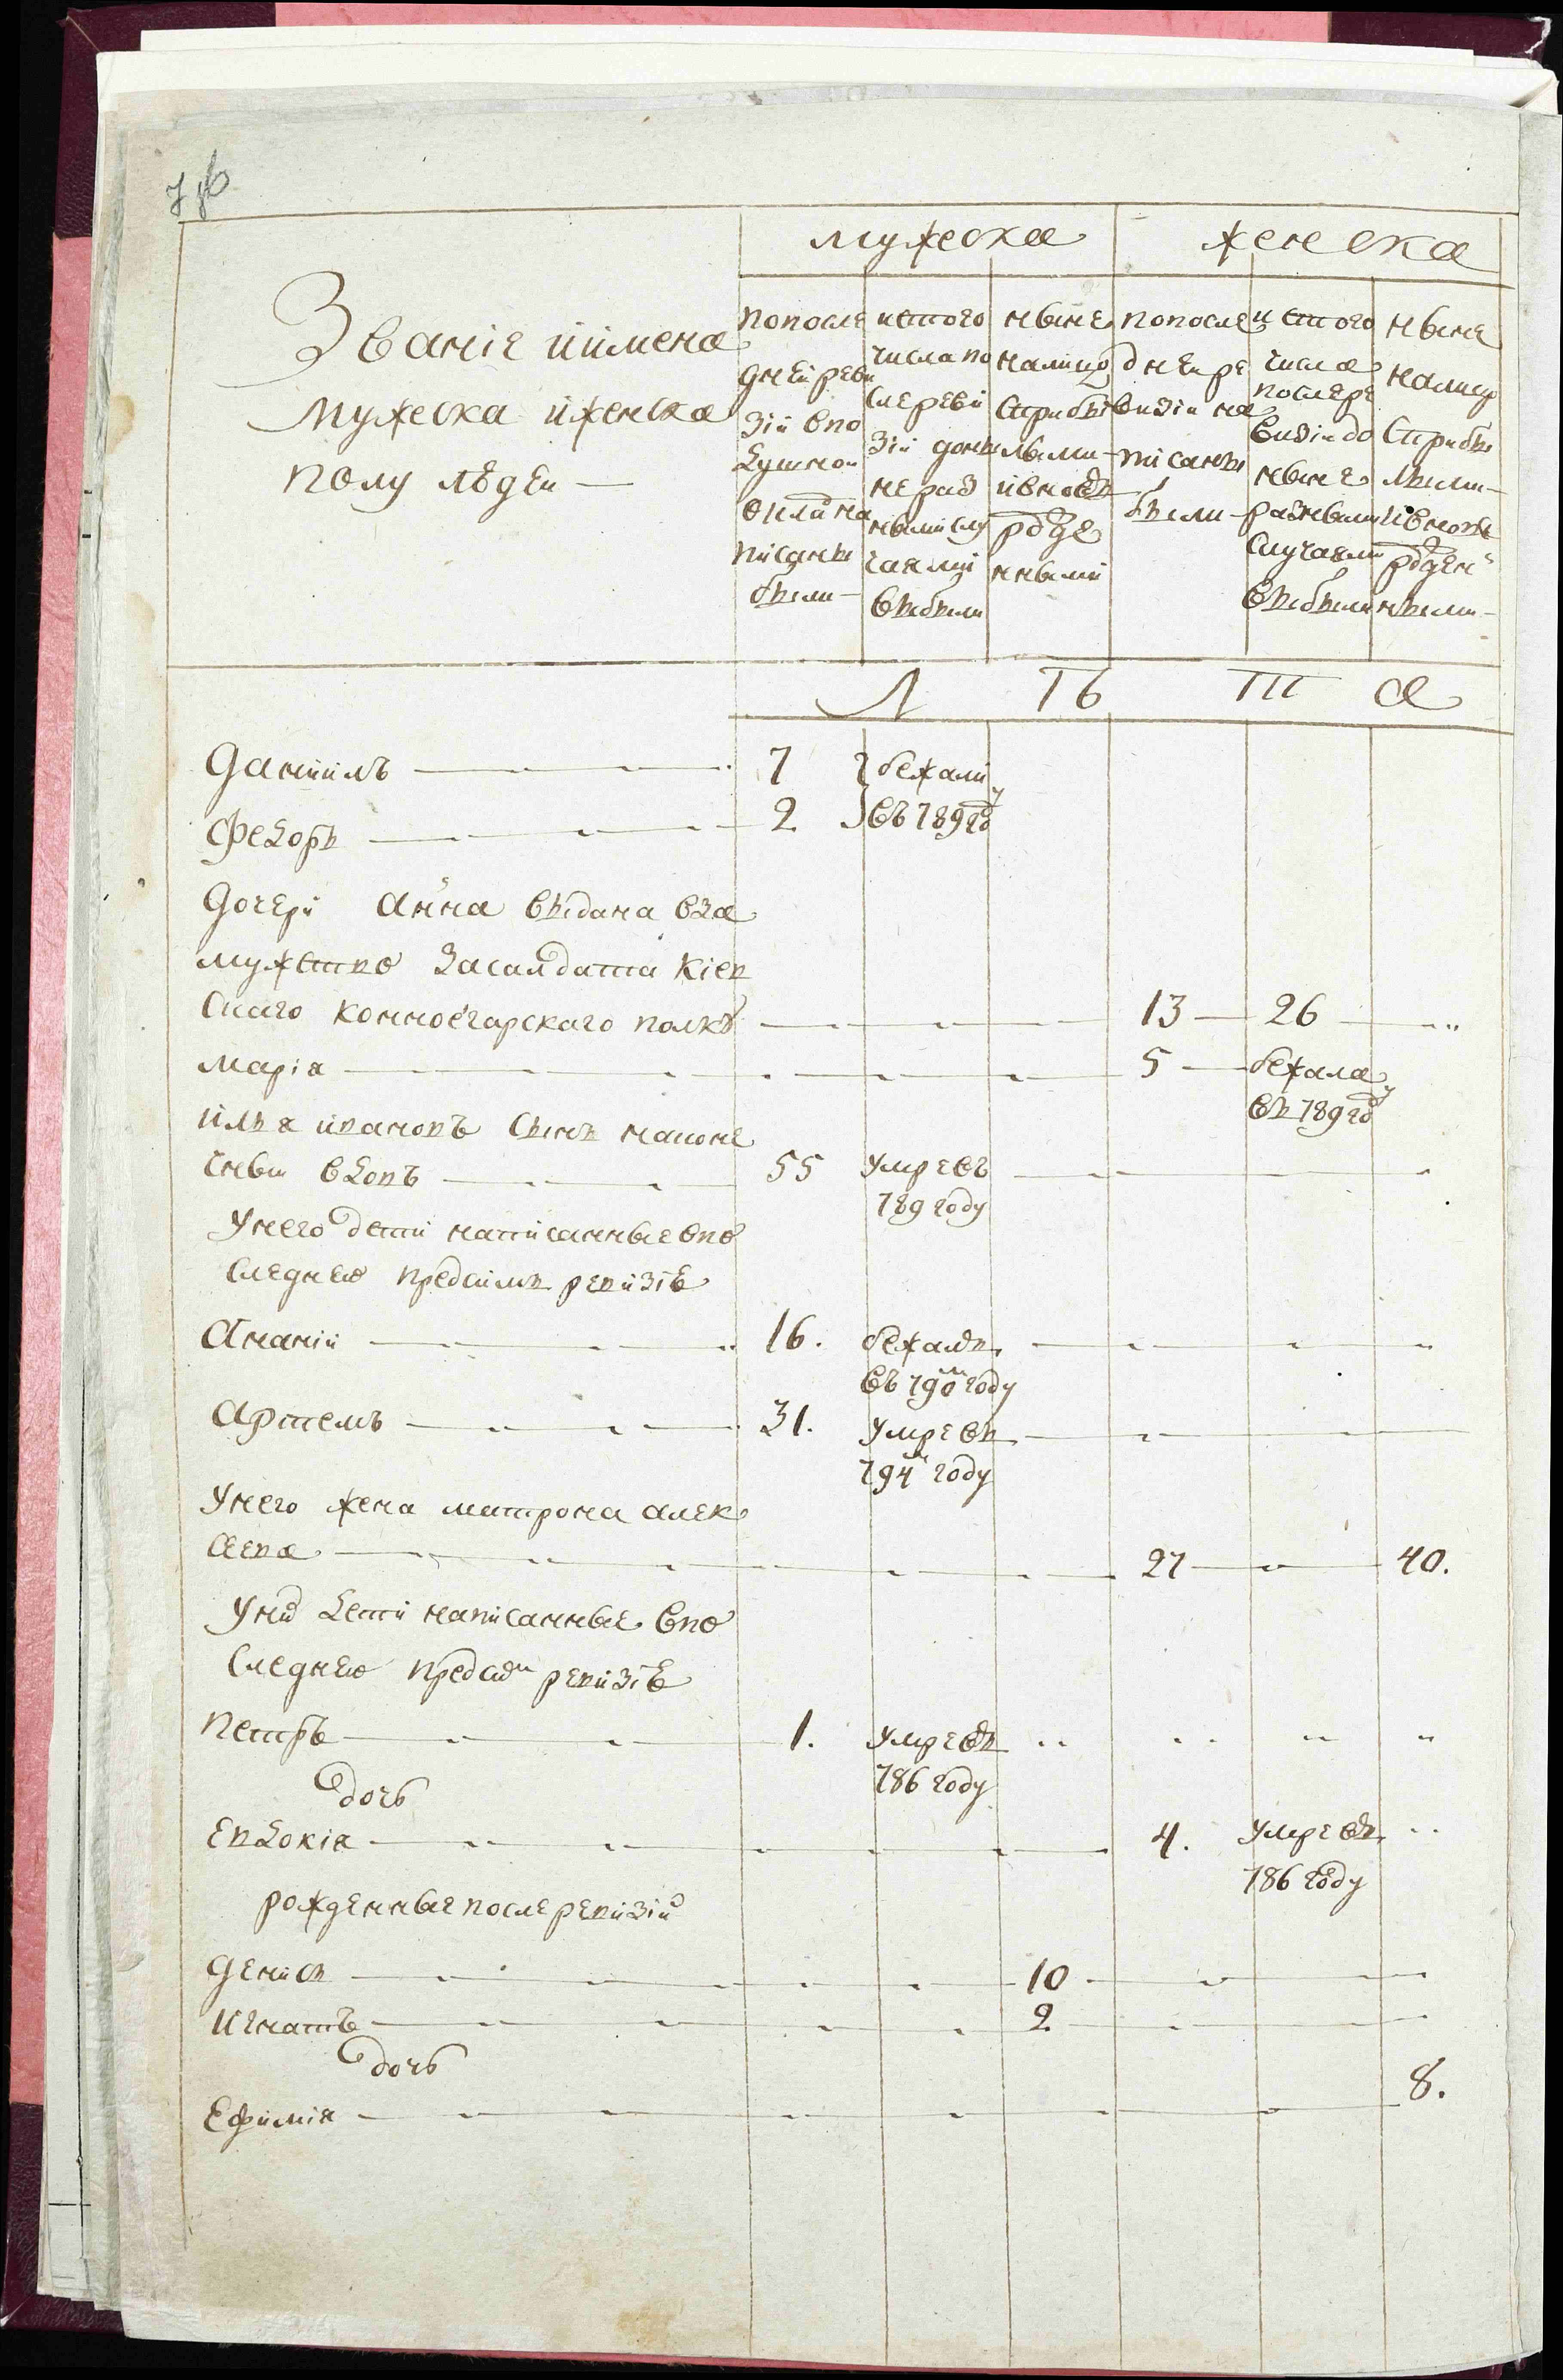 мужеска женска
Званіе иимена
мужеска иженска
полу лѣдеи —
попосле
днеи реви
зіи впо
душнои
окладъ на
писаны
были —
исшого
числа по
сле реви
зіи доны
не раз
ными слу
чаями
выбыли
ныне
налицо
сприбы
лыми —
ивновь
рожде
нными
попосле
днеи ре
визіи на
писаны
были —
исшого
числа
послере
визіи до
ныне
разными
случаями
выбыли
ныне
налицо
сприбы
лыми —
ивновь
рожден
ными —
Л ѣ т а
Даніилъ 7 бежали
Федоръ 2 въ 789 году
Дочери анна выдана вза
мужство засалдата Кіев
скаго конноегарскаго полку 13 26
марія 5 бежала
въ 789 году
илья ивановъ сынъ маионе
чныи вдовъ 55 умре въ
789 году
Унего дети написанные впо
следнею предсимъ ревизіѣ
Ананіи 16. бежалъ
въ 790м году
Артемъ 31. умре въ
794м году
Унего жена матрона алек
сеева 27 40.
Уних дети написанные впо
следнею предсимъ ревизіѣ
Петръ 1. умре въ
786 году
дочь
Евдокія 4. умре въ
786 году
рожденные после ревизіи
Денисъ 10
Игнатъ 2
дочь
Ефимія 8.